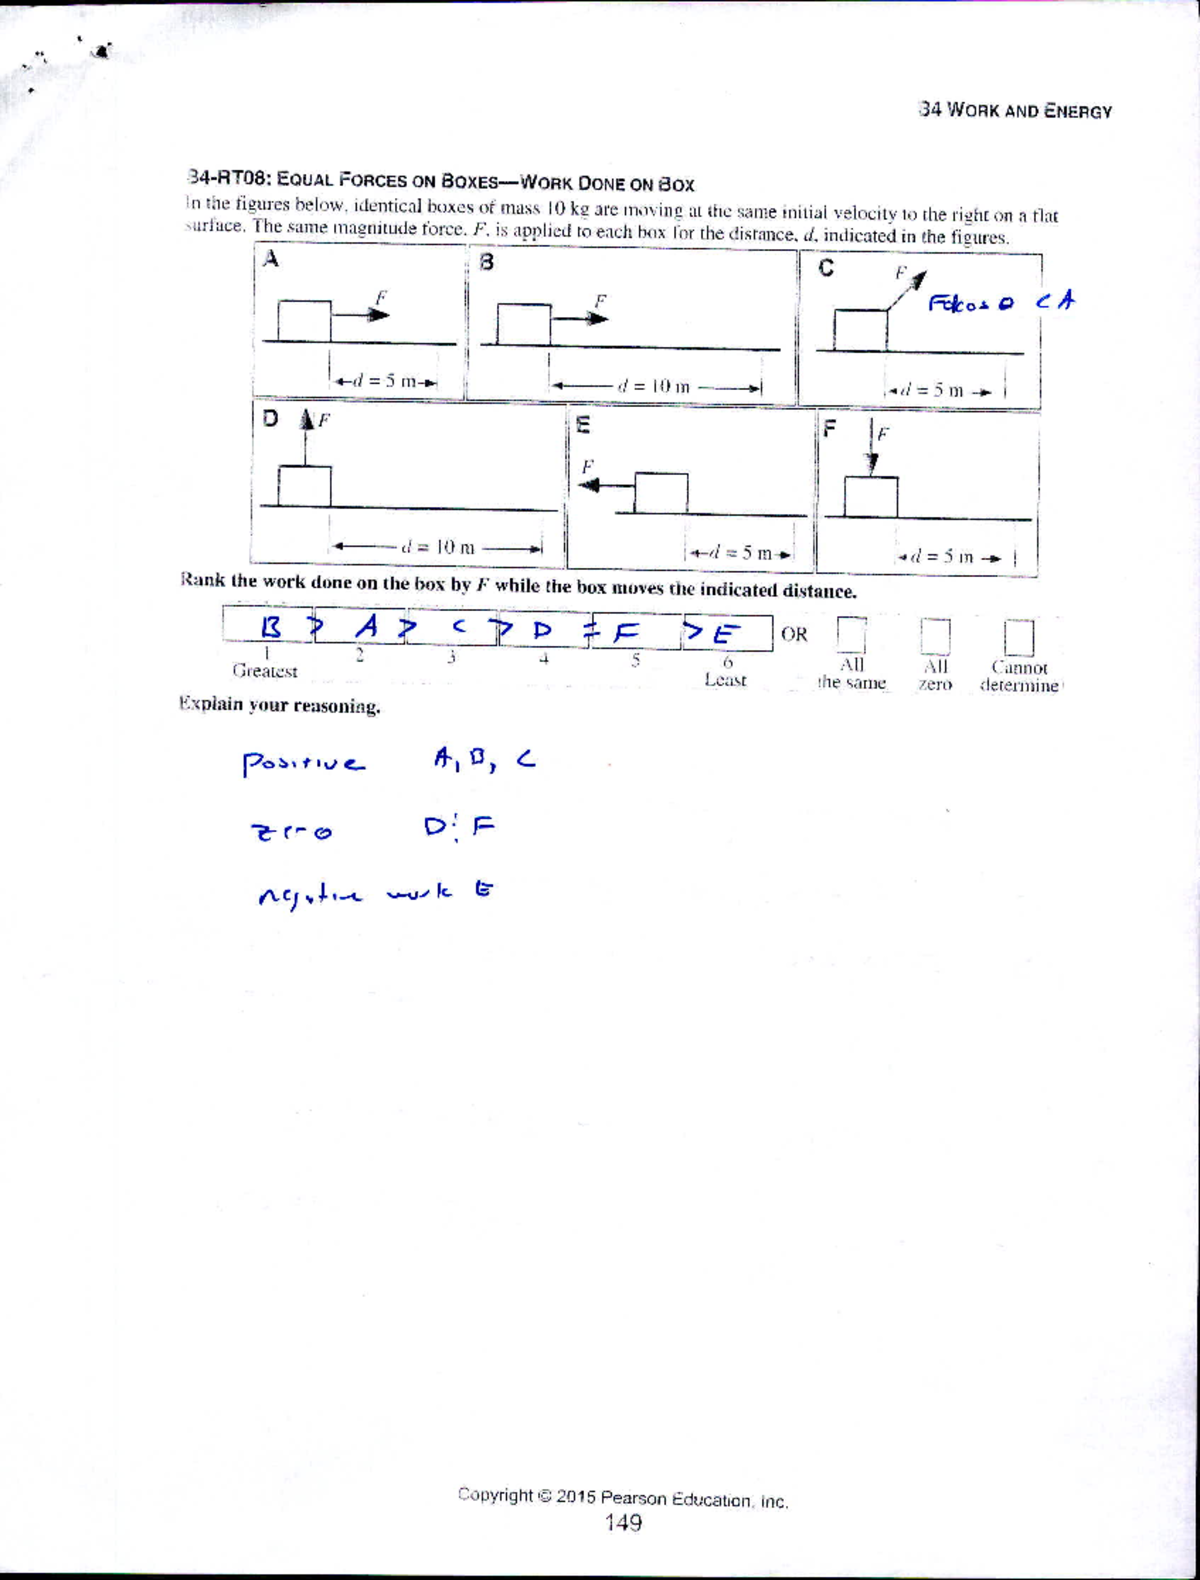 B4 WORK AND ENERGY
B4-RT08: EQUAL FORCES ON BOXES—WORK DONE ON BOX
In the figures below, identical boxes of mass 10 kg are moving at the same initial velocity to the right on a flat
surface. The same magnitude force, F, is applied to each box for the distance, d, indicated in the figures.
A
F
d = 5 m
B
F
d = 10 m
C
F
Fdcos θ < A
d = 5 m
D
F
d = 10 m
E
F
d = 5 m
F
F
d = 5 m
Rank the work done on the box by F while the box moves the indicated distance.
B > A > C > D = F > E OR
1 2 3 4 5 6
Greatest Least
All the same
All zero
Cannot determine
Explain your reasoning.
Positive A, B, C
zero D : F
negative work E
Copyright © 2015 Pearson Education, Inc.
149